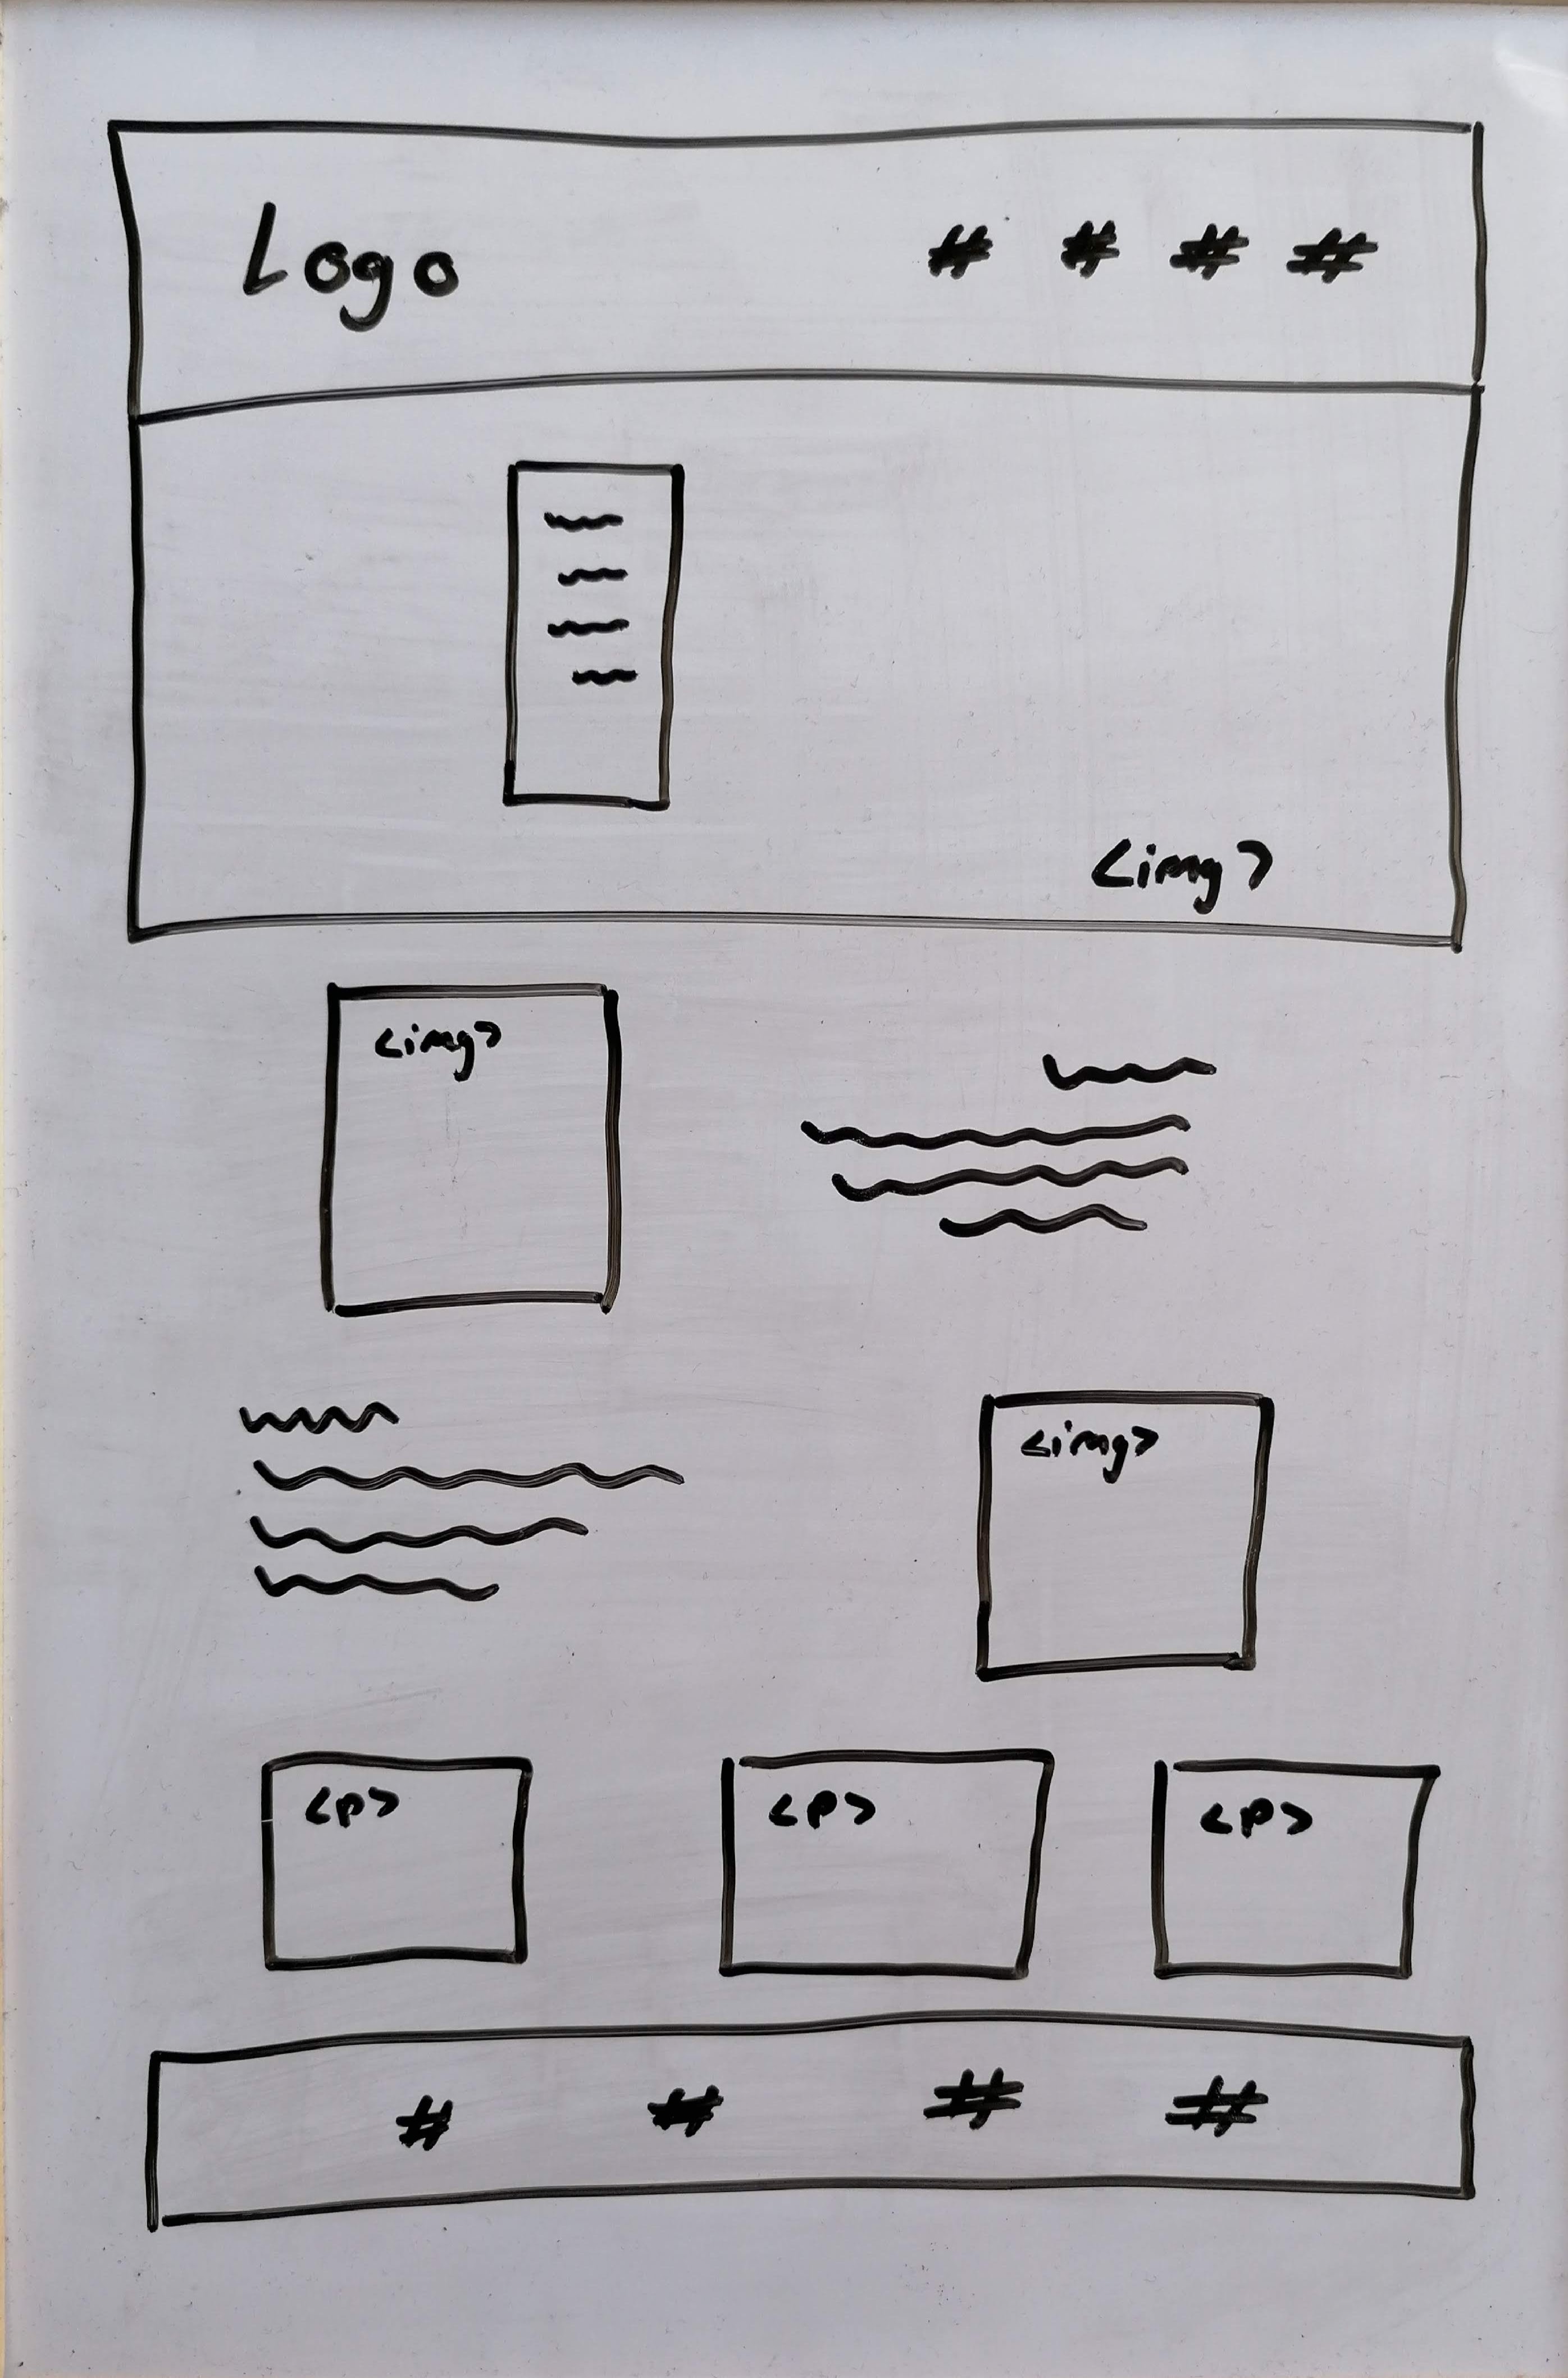 Logo # # # #
<img>
<img>
<img>
<p> <p> <p>
# # # #